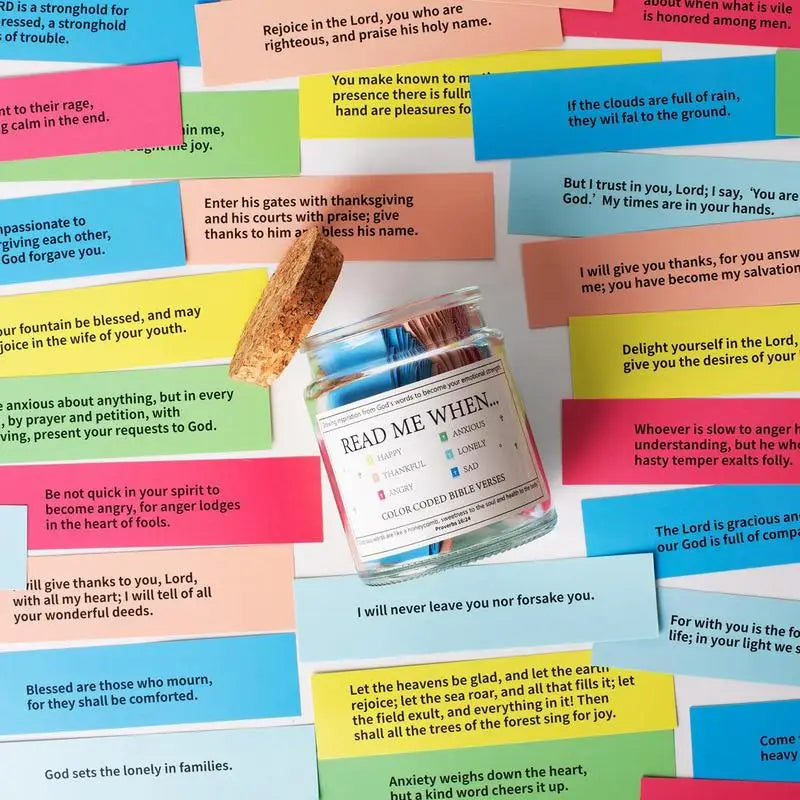 RD is a stronghold for
ressed, a stronghold
s of trouble.
Rejoice in the Lord, you who are
righteous, and praise his holy name.
about when what is vile
is honored among men.
nt to their rage,
g calm in the end.
in me,
ught me joy.
You make known to m
presence there is fulln
hand are pleasures fo
If the clouds are full of rain,
they wil fal to the ground.
mpassionate to
rgiving each other,
God forgave you.
Enter his gates with thanksgiving
and his courts with praise; give
thanks to him and bless his name.
But I trust in you, Lord; I say, ‘You are
God.’ My times are in your hands.
I will give you thanks, for you answ
me; you have become my salvation
our fountain be blessed, and may
joice in the wife of your youth.
Delight yourself in the Lord,
give you the desires of your
e anxious about anything, but in every
, by prayer and petition, with
ving, present your requests to God.
Whoever is slow to anger h
understanding, but he who
hasty temper exalts folly.
Be not quick in your spirit to
become angry, for anger lodges
in the heart of fools.
Drawing inspiration from God's words to become your emotional strength
READ ME WHEN...
HAPPY
THANKFUL
ANGRY
ANXIOUS
LONELY
SAD
COLOR CODED BIBLE VERSES
Gracious words are like a honeycomb, sweetness to the soul and health to the body
Proverbs 16:24
The Lord is gracious and
our God is full of compa
will give thanks to you, Lord,
with all my heart; I will tell of all
your wonderful deeds.
I will never leave you nor forsake you.
For with you is the fo
life; in your light we s
Blessed are those who mourn,
for they shall be comforted.
Let the heavens be glad, and let the earth
rejoice; let the sea roar, and all that fills it; let
the field exult, and everything in it! Then
shall all the trees of the forest sing for joy.
Come
heavy
God sets the lonely in families.
Anxiety weighs down the heart,
but a kind word cheers it up.